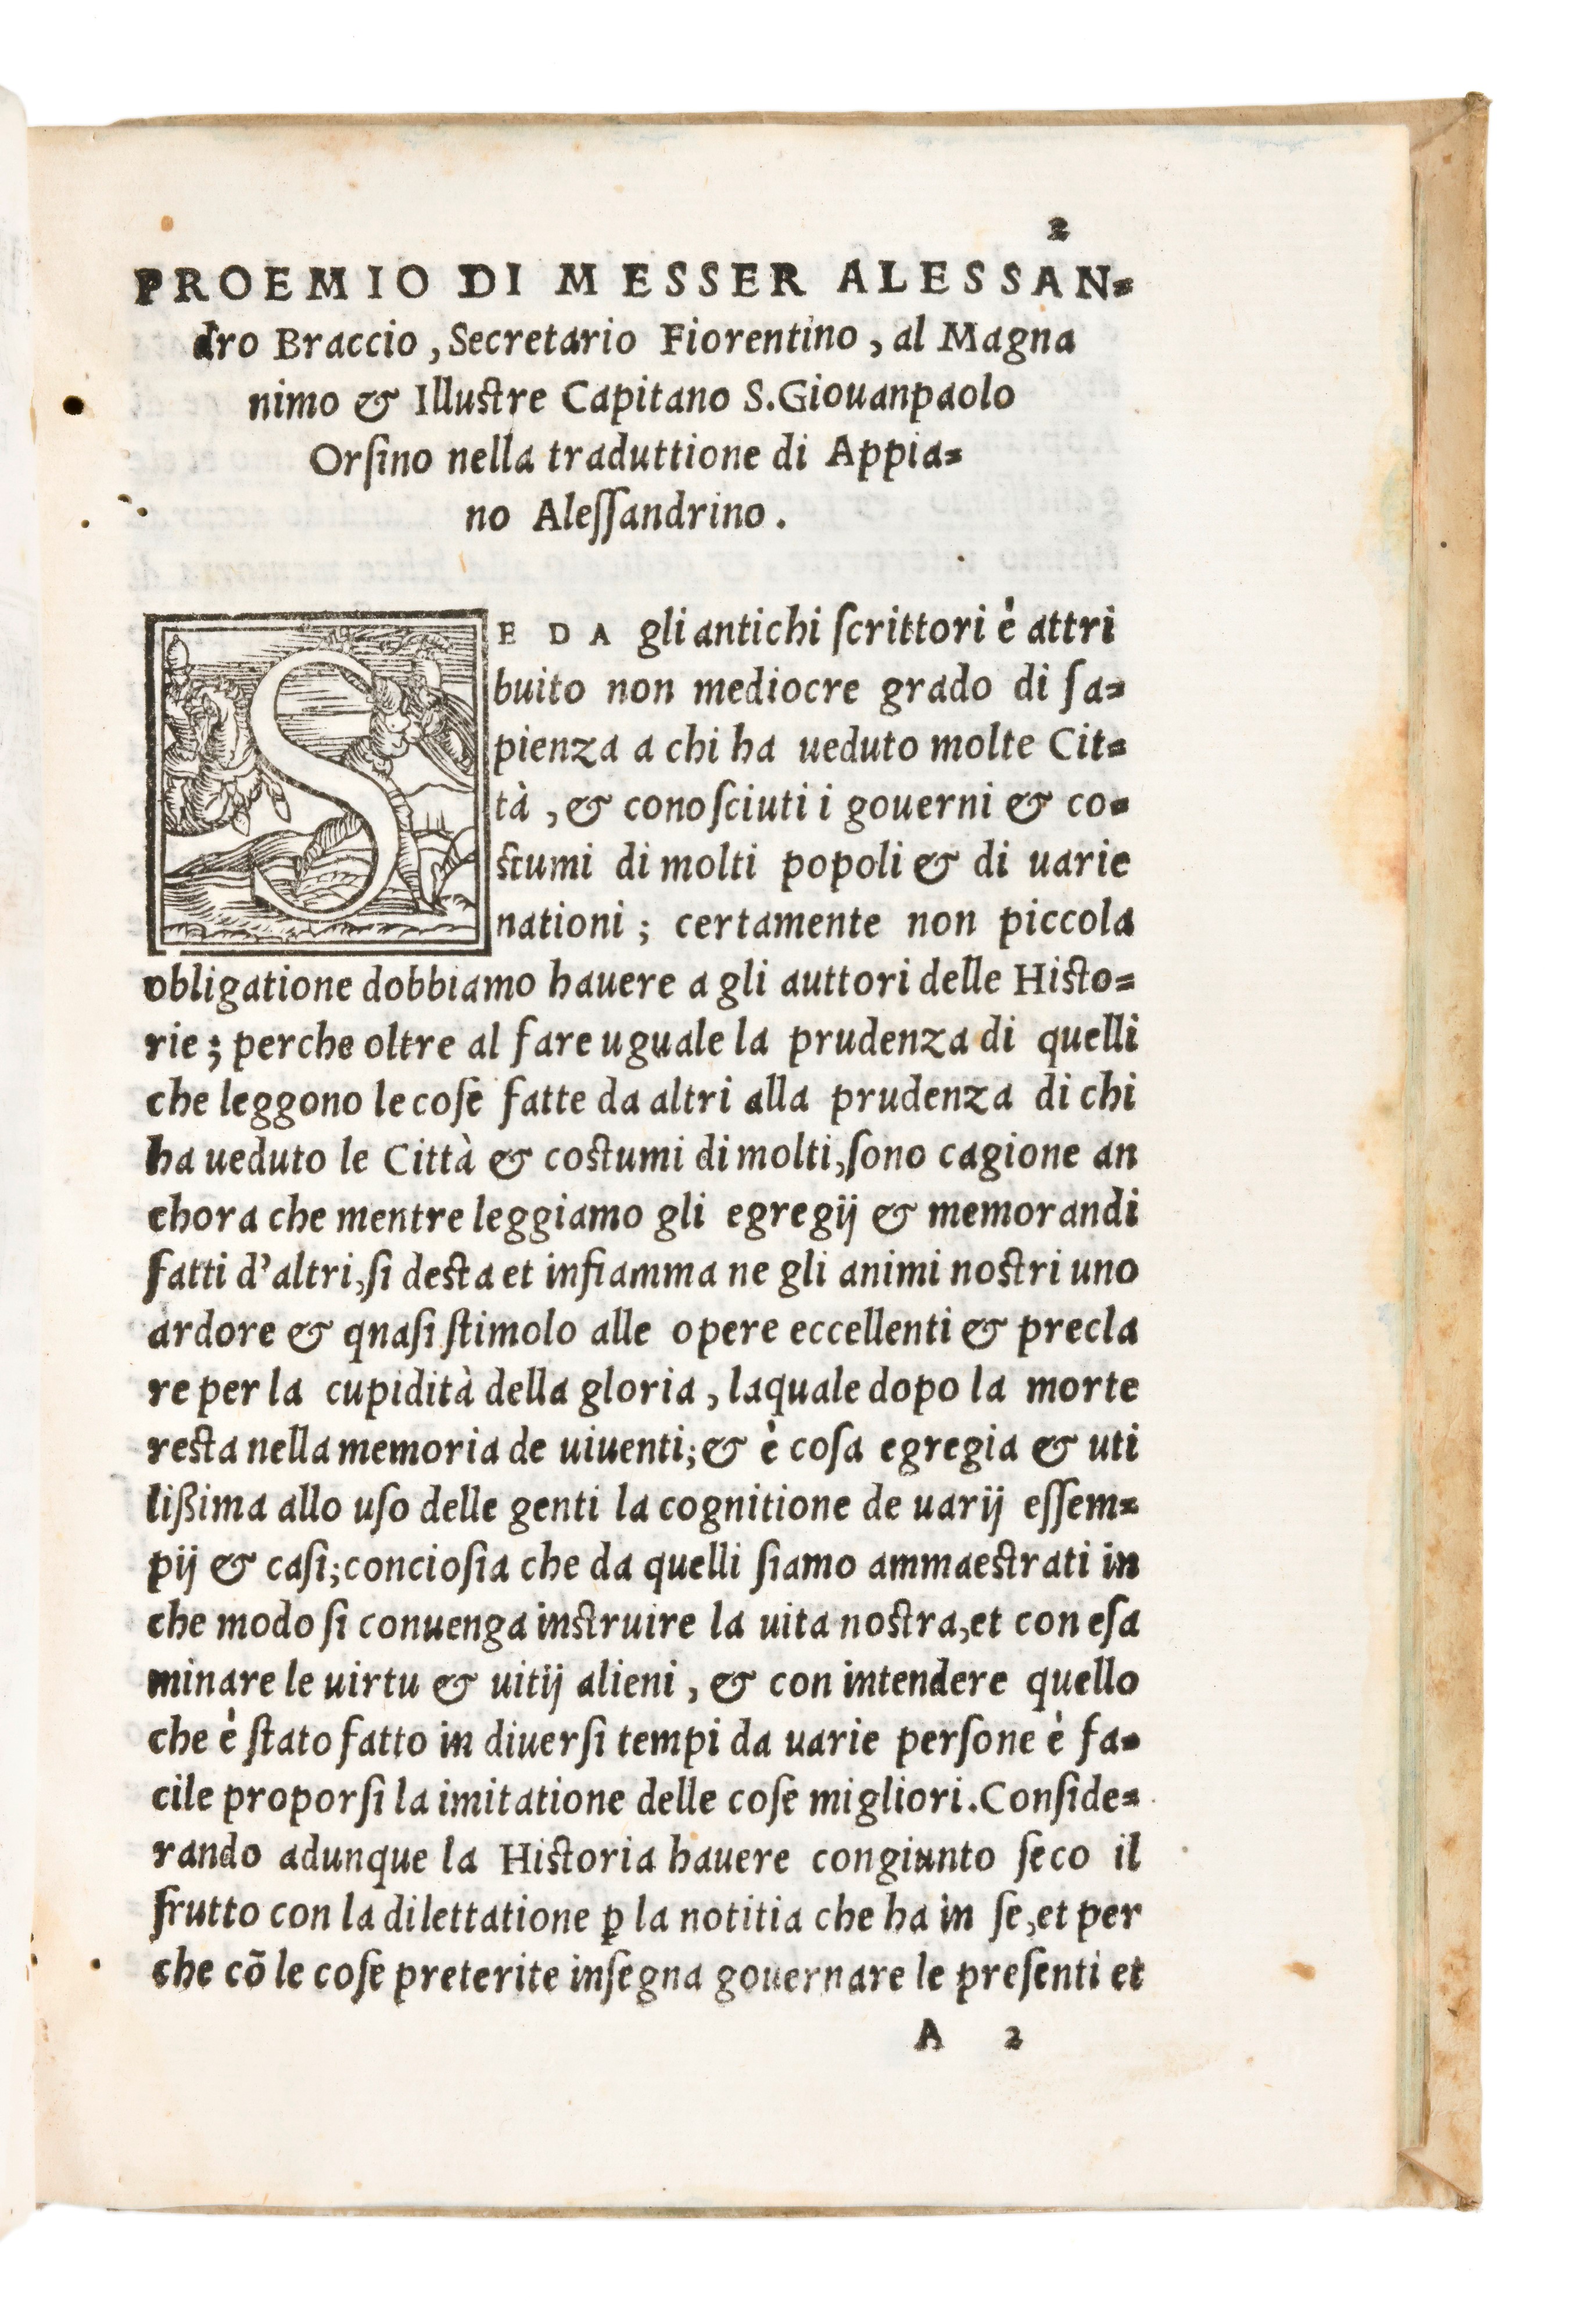 2
PROEMIO DI MESSER ALESSAN=
dro Braccio, Secretario Fiorentino, al Magna
nimo & Illustre Capitano S. Giouanpaolo
Orſino nella traduttione di Appia=
no Aleſſandrino.
SE DA gli antichi ſcrittori è attri
buito non mediocre grado di ſa=
pienza a chi ha ueduto molte Cit=
tà, & conoſciuti i gouerni & co=
stumi di molti popoli & di uarie
nationi; certamente non piccola
obligatione dobbiamo hauere a gli auttori delle Histo=
rie; perche oltre al fare uguale la prudenza di quelli
che leggono le coſe fatte da altri alla prudenza di chi
ha ueduto le Città & costumi di molti, ſono cagione an
chora che mentre leggiamo gli egregij & memorandi
fatti d'altri, ſi desta et infiamma ne gli animi nostri uno
ardore & qnaſi ſtimolo alle opere eccellenti & precla
re per la cupidità della gloria, laquale dopo la morte
resta nella memoria de uiuenti; & è coſa egregia & uti
lißima allo uſo delle genti la cognitione de uarij eſſem=
pij & caſi; concioſia che da quelli ſiamo ammaestrati in
che modo ſi conuenga instruire la uita nostra, et con eſa
minare le uirtu & uitij alieni, & con intendere quello
che è ſtato fatto in diuerſi tempi da uarie perſone è fa=
cile proporſi la imitatione delle coſe migliori. Conſide=
rando adunque la Historia hauere congiunto ſeco il
frutto con la dilettatione ꝑ la notitia che ha in ſe, et per
che cō le coſe preterite inſegna gouernare le preſenti et
A 2